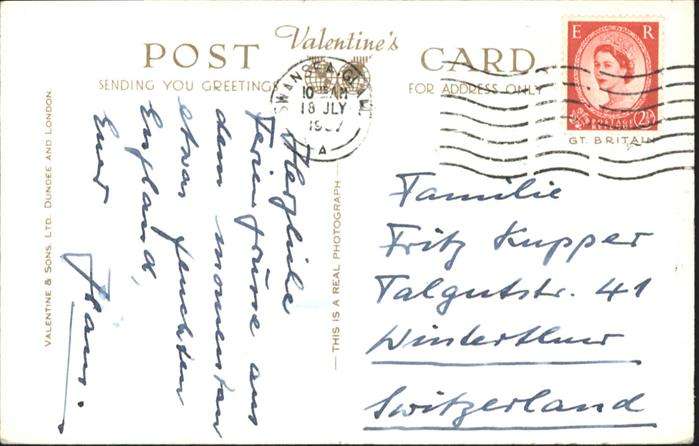 POST Valentine's CARD
SENDING YOU GREETINGS
FOR ADDRESS ONLY
SWANSEA GLAM
10 AM
18 JLY
A
E R
POSTAGE
2½
GT. BRITAIN
VALENTINE & SONS. LTD. DUNDEE AND LONDON.
Herzliche
Feriengrüsse aus
dem momentan
etwas feuchten
England,
Euer
Hans.
THIS IS A REAL PHOTOGRAPH
Familie
Fritz Kupper
Talgutstr. 41
Winterthur
Switzerland